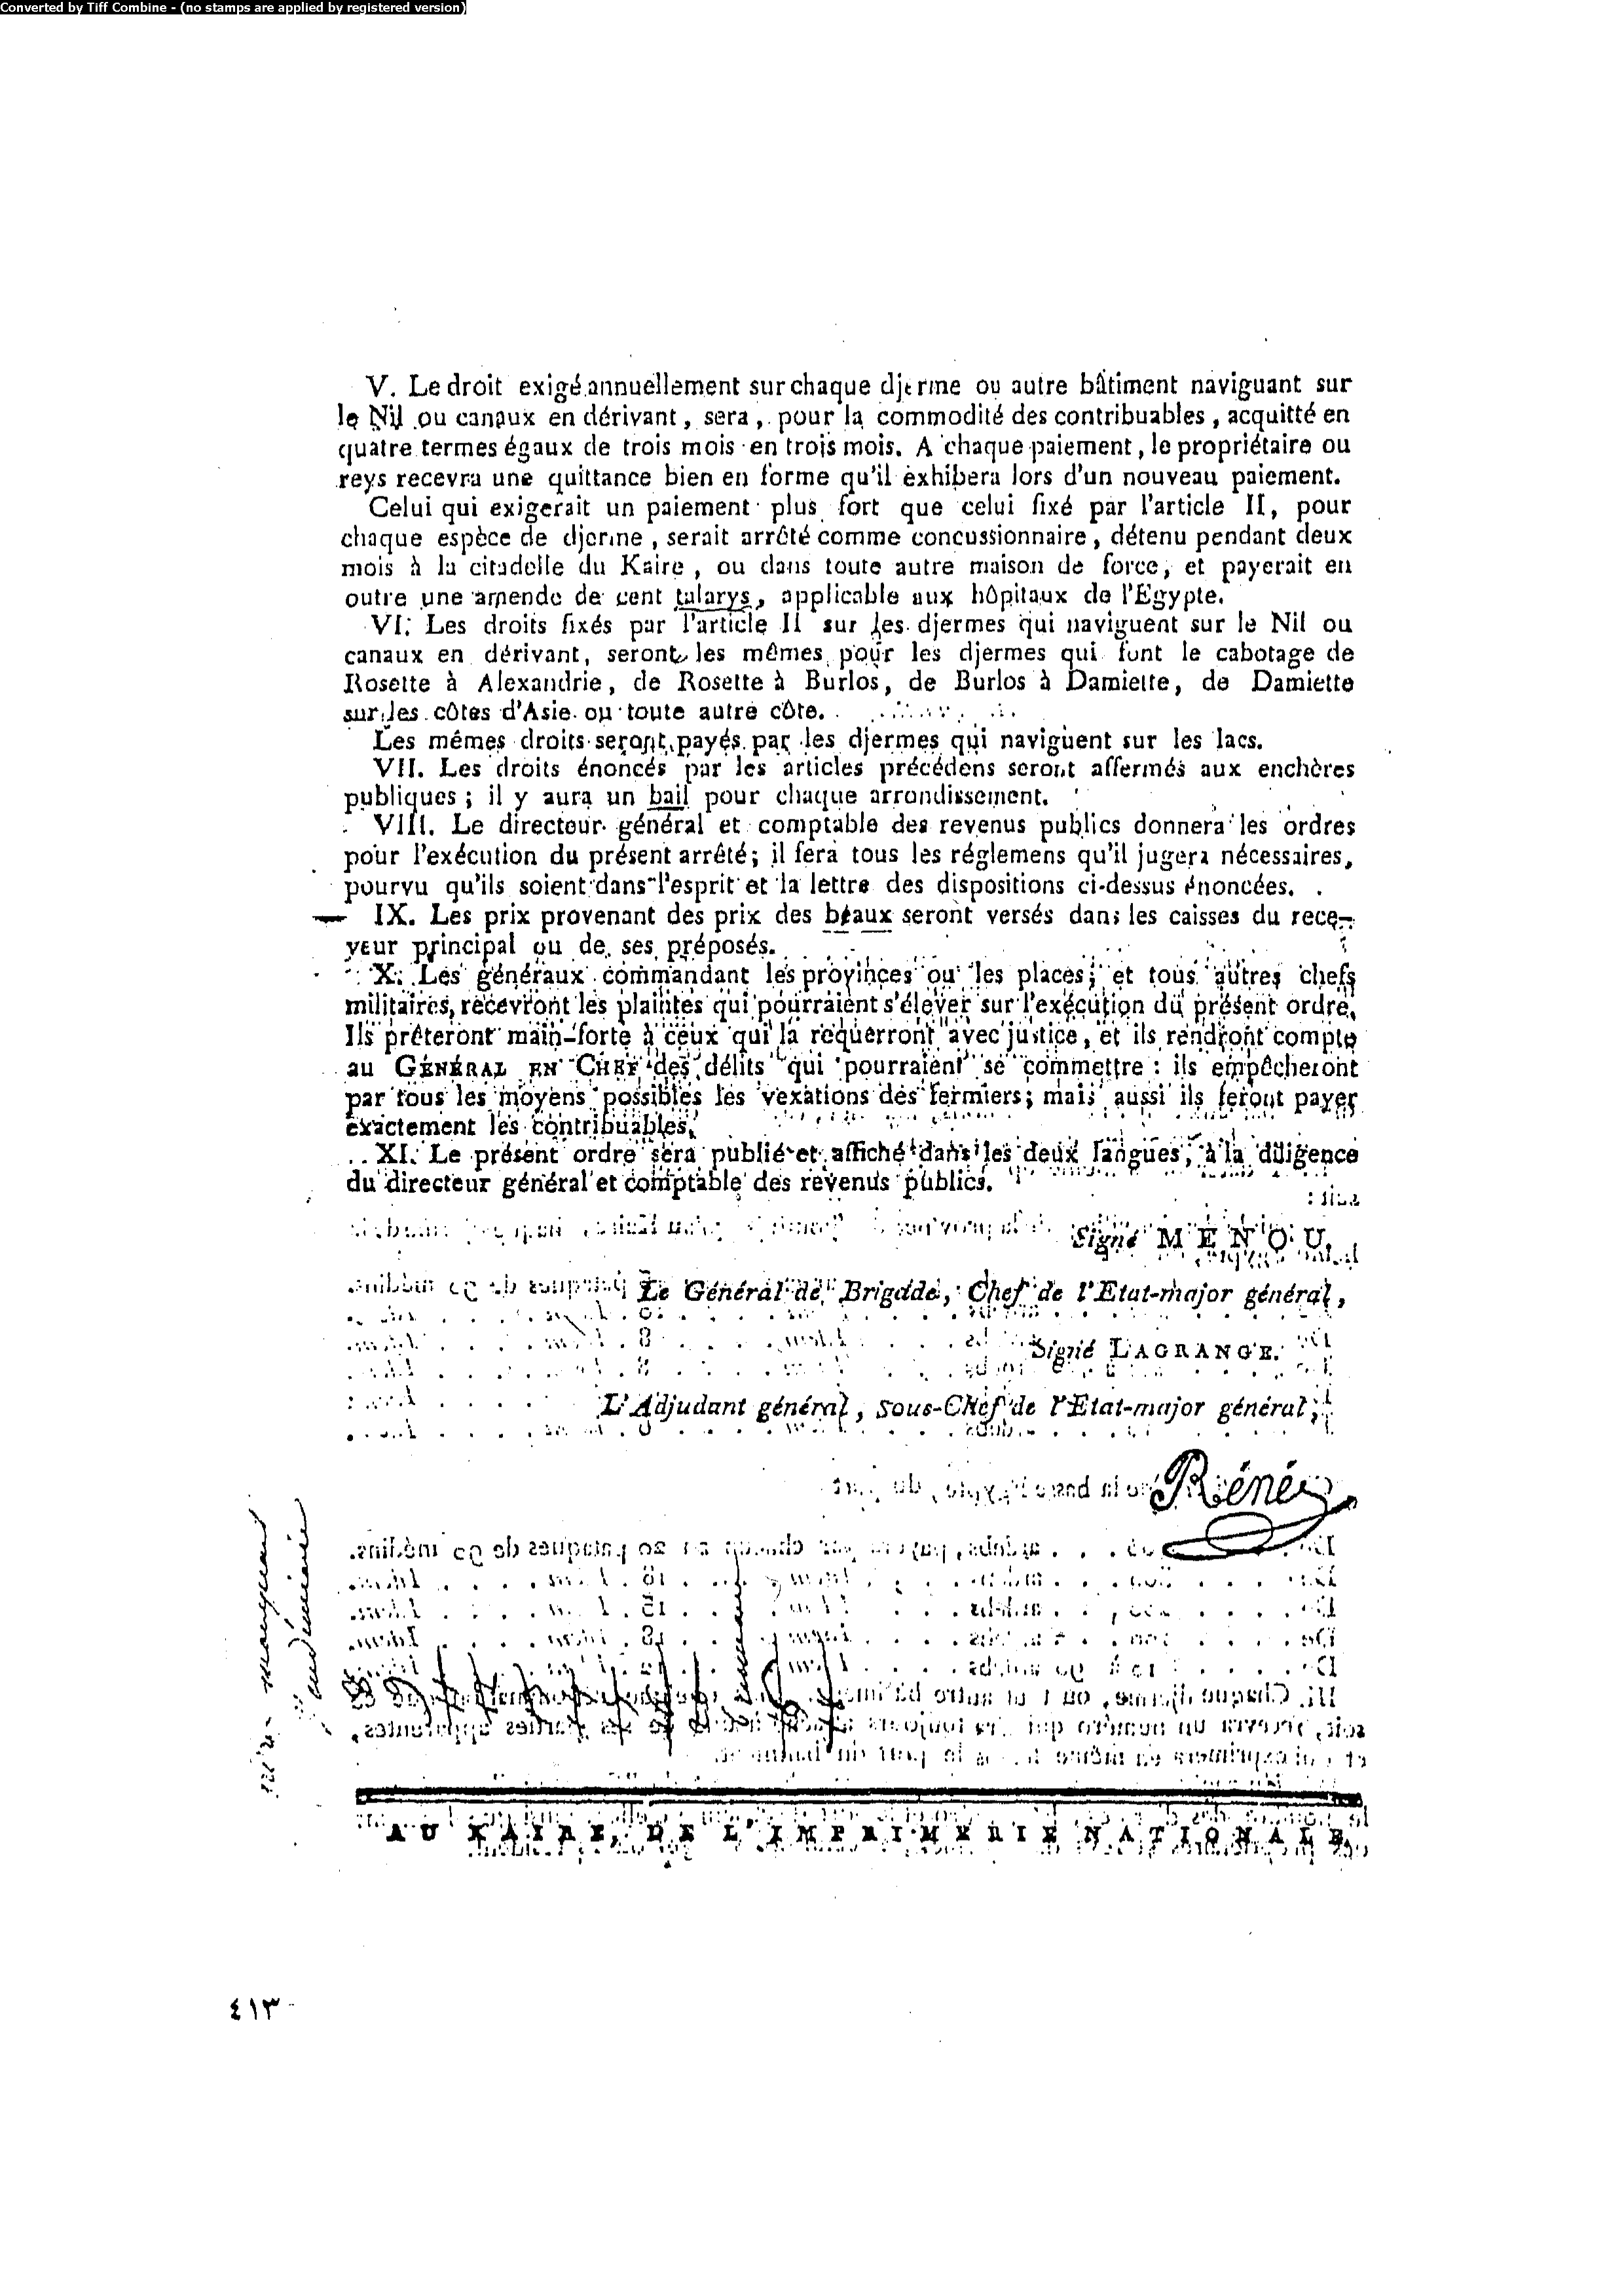 Converted by Tiff Combine - (no stamps are applied by registered version)
V. Le droit exigé annuellement sur chaque djerme ou autre bâtiment naviguant sur
le Nil ou canaux en dérivant, sera, pour la commodité des contribuables, acquitté en
quatre termes égaux de trois mois en trois mois. A chaque paiement, le propriétaire ou
reys recevra une quittance bien en forme qu'il exhibera lors d'un nouveau paiement.
Celui qui exigerait un paiement plus fort que celui fixé par l'article II, pour
chaque espèce de djerme, serait arrêté comme concussionnaire, détenu pendant deux
mois à la citadelle du Kaire, ou dans toute autre maison de force, et payerait en
outre une amende de cent talarys, applicable aux hôpitaux de l'Egypte.
VI. Les droits fixés par l'article II sur les djermes qui naviguent sur le Nil ou
canaux en dérivant, seront les mêmes pour les djermes qui font le cabotage de
Rosette à Alexandrie, de Rosette à Burlos, de Burlos à Damiette, de Damiette
sur les côtes d'Asie ou toute autre côte.
Les mêmes droits seront payés par les djermes qui naviguent sur les lacs.
VII. Les droits énoncés par les articles précédens seront affermés aux enchères
publiques; il y aura un bail pour chaque arrondissement.
VIII. Le directeur général et comptable des revenus publics donnera les ordres
pour l'exécution du présent arrêté; il fera tous les réglemens qu'il jugera nécessaires,
pourvu qu'ils soient dans l'esprit et la lettre des dispositions ci-dessus énoncées.
IX. Les prix provenant des prix des beaux seront versés dans les caisses du rece-
veur principal ou de ses préposés.
X. Les généraux commandant les provinces ou les places, et tous autres chefs
militaires, recevront les plaintes qui pourraient s'élever sur l'exécution du présent ordre.
Ils prêteront main-forte à ceux qui la requerront avec justice, et ils rendront compte
au GÉNÉRAL EN CHEF des délits qui pourraient se commettre : ils empêcheront
par tous les moyens possibles les vexations des fermiers; mais aussi ils feront payer
exactement les contribuables.
XI. Le présent ordre sera publié et affiché dans les deux langues, à la diligence
du directeur général et comptable des revenus publics.
Signé MENOU.
Le Général de Brigade, Chef de l'Etat-major général,
Signé LAGRANGE.
L'Adjudant général, sous-Chef de l'Etat-major général,
Réné
AU KAIRE, DE L'IMPRIMERIE NATIONALE.
٤١٣